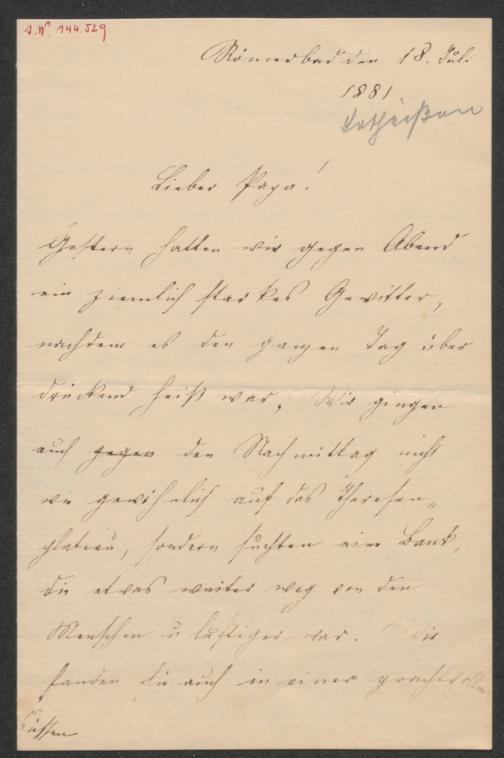 J.N. 144.529
Römerbad den 18. Juli
1881
Lieber Papa!
Gestern hatten wir gegen Abend
ein ziemlich starkes Gewitter,
nachdem es den ganzen Tag über
drückend heiß war. Wir gingen
auch gegen den Nachmittag nicht
wie gewöhnlich auf das Theresen„
plateau, sondern suchten eine Bank,
die etwas weiter weg von den
Menschen u luftiger war. Wir
fanden sie auch in einer prachtvollen